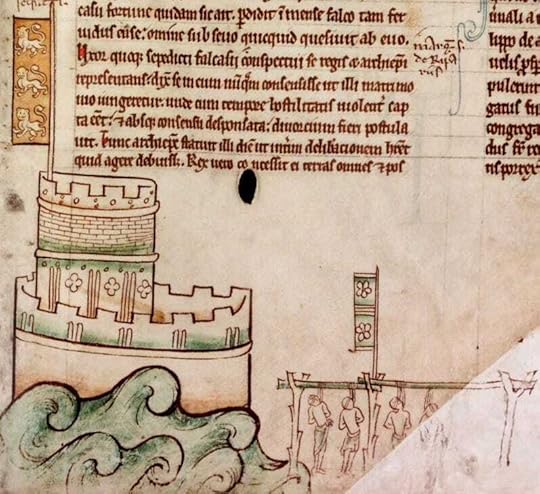 casu fortune quidam sic ait. Pdidit i mense falco tam fer
uidus ense: omine sub seuo quicquid quesiuit ab euo.
Uxor quoq; sepedicti falcasii conspectui se regis & archiepi
representans. dix se in eum nūqam consensisse ut illi matrimo
nio iungeretur. unde cum tempore hostilitatis uiolent cap
ta eēt: & absq; consensu desponsata: diuorcium fieri postula
uit. Tunc archiepc statuit illi diē ut interim deliberationem hēret
quid agere debuiss;. Rex uero concessit ei terras omnes & pos
marg.
de Ripa
riis
lupo de
pulerunt
gatus
congrega